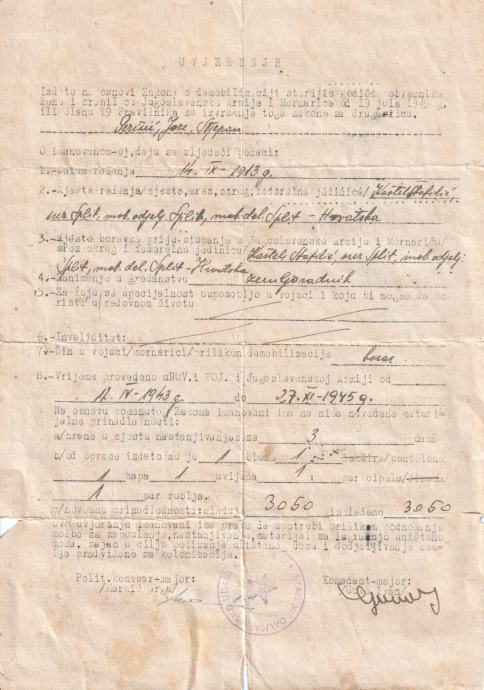 UVJERENJE
Izdato na osnovi Zakona o demobilizaciji starijih godišta obveznika
i Jugoslavenske Armije i Mornarice od 19 jula 1945 g.
ili član 19 Pravilnika za izvršenje toga zakona za drugaricu.
Joze, Stjepan
O imenovanom-oj, daju se sljedeći podaci:
1.-Datum rođenja 14. IX - 1913 g.
2.-Mjesto rođenja/mjesto, srez, okrug, federalna jedinica/ Kaštel Stafilić,
srez Split, mob. odjelj Split, mob. del. Split - Hrvatska
3.-Mjesto boravka prije stupanja u Jugoslavensku armiju i Mornaricu/
srez okrug i federalna jedinica/ Kaštel Stafilić, srez Split, mob odjelj
Split, mob. del. Split - Hrvatska
4.-Zanimanje u građanstvu zemljoradnik
5.-Za koju se specijalnost osposobio u vojsci i koju bi mogao da ko
risti u redovnom životu
6.-Invaliditet:
7.-Čin u vojsci/mornarici/prilikom demobilizacije borac
8.-Vrijeme provedeno u NOV. i POJ. i Jugoslavenskoj Armiji od
IV-1943 g do 27. XI-1945 g.
Na osnovu Zakona imenovani ima na niže navedene materi-
jalne prinadležnosti:
a/hranu u mjestu nastanjivanja za 3 dana
b/od opreme izdato mu je 1 bluza 1 pantalon
1 kapa 1 1 par cipela
1 par rublja.
c/novčane prinadležnosti: sleduje 3050 isplaćeno 3050
Ovo uvjerenje imenovani ima pravo da upotrebi prilikom podnošenja
molba za zaposlenje, nastanjivanje, materijal za izgradnju uništenog
doma, zajam u cilju podizanja uništenog doma i dodjeljivanje zem-
lje predviđene za kolonizaciju.
Polit. komesar-major: Komandant-major: